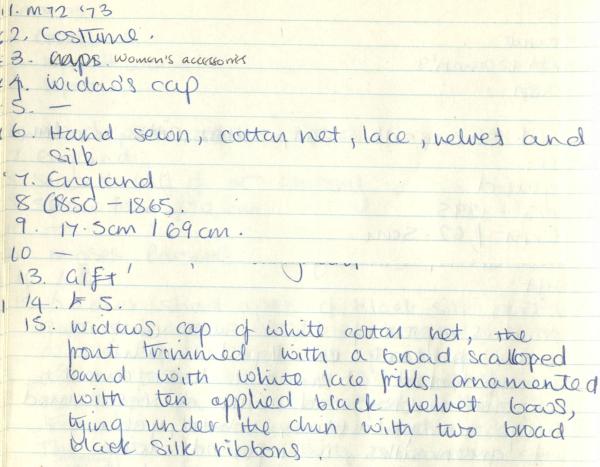 1. M72 '73
2. Costume.
3. caps. Women's accessories
4. Widow's cap
5. —
6. Hand sewn, cotton net, lace, velvet and
silk
7. England
8 C1850 - 1865.
9. 17.5cm / 69cm.
10 —
13. Gift
14. 5.
15. Widows cap of white cotton net, the
front trimmed with a broad scalloped
band with white lace frills ornamented
with ten applied black velvet bows,
tying under the chin with two broad
black silk ribbons.